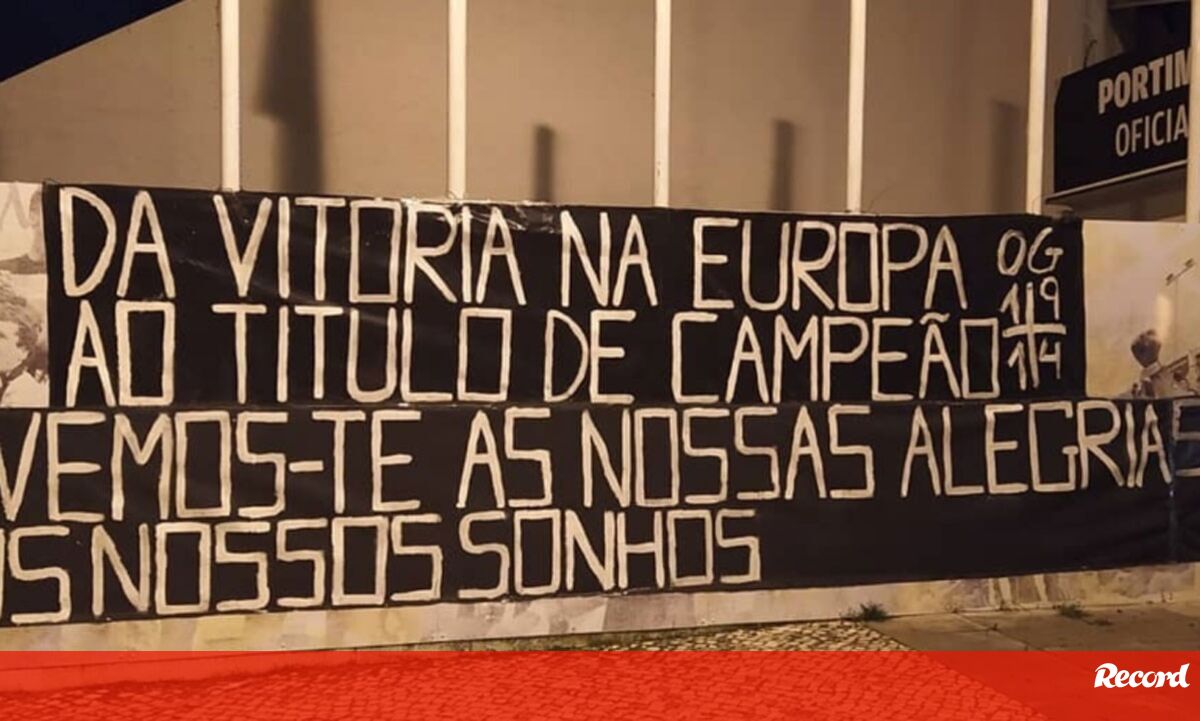 PORTIM
OFICIA
DA VITORIA NA EUROPA
AO TITULO DE CAMPEÃO
OG
19
14
VEMOS-TE AS NOSSAS ALEGRIAS
OS NOSSOS SONHOS
Record